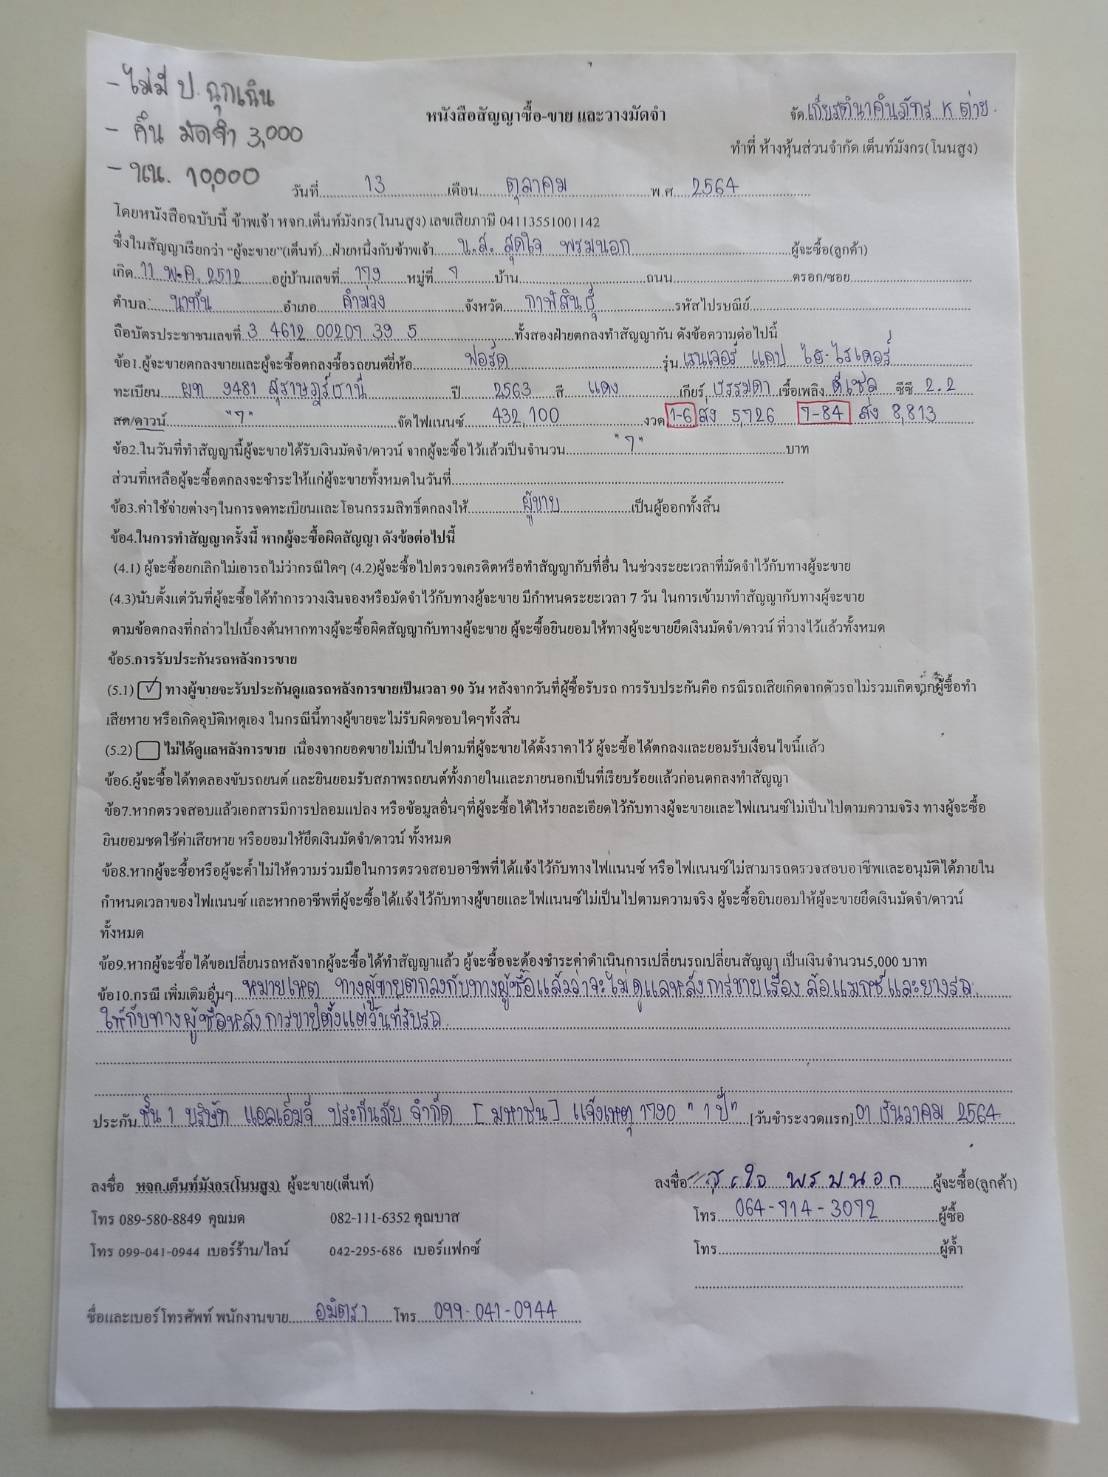 - ไม่มี ป. ฉุกเฉิน
- คืน มัดจำ 3,000
- นน. 10,000
หนังสือสัญญาซื้อ-ขาย และวางมัดจำ
จัด เกียรตินาคินภัทร K ต่าย
ทำที่ ห้างหุ้นส่วนจำกัด เต็นท์มังกร(โนนสูง)
วันที่ 13 เดือน ตุลาคม พ.ศ. 2564
โดยหนังสือฉบับนี้ ข้าพเจ้า หจก.เต็นท์มังกร(โนนสูง) เลขเสียภาษี 04113551001142
ซึ่งในสัญญาเรียกว่า "ผู้จะขาย"(เต็นท์)...ฝ่ายหนึ่งกับข้าพเจ้า น.ส. สุดใจ พรมนอก ผู้จะซื้อ(ลูกค้า)
เกิด 11 พ.ค. 2512 อยู่บ้านเลขที่ 179 หมู่ที่ 7 บ้าน ถนน ตรอก/ซอย
ตำบล นาทัน อำเภอ คำม่วง จังหวัด กาฬสินธุ์ รหัสไปรษณีย์
ถือบัตรประชาชนเลขที่ 3 4612 00207 39 5 ทั้งสองฝ่ายตกลงทำสัญญากัน ดังข้อความต่อไปนี้
ข้อ1.ผู้จะขายตกลงขายและผู้จะซื้อตกลงซื้อรถยนต์ยี่ห้อ ฟอร์ด รุ่น เรนเจอร์ แคป ไฮ-ไรเดอร์
ทะเบียน ผท 9481 สุราษฎร์ธานี ปี 2563 สี แดง เกียร์ ธรรมดา เชื้อเพลิง ดีเซล ซีซี 2.2
สด/ดาวน์ "7" จัดไฟแนนซ์ 432,100 งวด 1-6 ส่ง 5,726 7-84 ส่ง 8,813
ข้อ2.ในวันที่ทำสัญญานี้ผู้จะขายได้รับเงินมัดจำ/ดาวน์ จากผู้จะซื้อไว้แล้วเป็นจำนวน "7" บาท
ส่วนที่เหลือผู้จะซื้อตกลงจะชำระให้แก่ผู้จะขายทั้งหมดในวันที่
ข้อ3.ค่าใช้จ่ายต่างๆในการจดทะเบียนและโอนกรรมสิทธิ์ตกลงให้ ผู้ขาย เป็นผู้ออกทั้งสิ้น
ข้อ4.ในการทำสัญญาครั้งนี้ หากผู้จะซื้อผิดสัญญา ดังข้อต่อไปนี้
(4.1) ผู้จะซื้อยกเลิกไม่เอารถไม่ว่ากรณีใดๆ (4.2)ผู้จะซื้อไปตรวจเครดิตหรือทำสัญญากับที่อื่น ในช่วงระยะเวลาที่มัดจำไว้กับทางผู้จะขาย
(4.3)นับตั้งแต่วันที่ผู้จะซื้อได้ทำการวางเงินจองหรือมัดจำไว้กับทางผู้จะขาย มีกำหนดระยะเวลา 7 วัน ในการเข้ามาทำสัญญากับทางผู้จะขาย
ตามข้อตกลงที่กล่าวไปเบื้องต้นหากทางผู้จะซื้อผิดสัญญากับทางผู้จะขาย ผู้จะซื้อยินยอมให้ทางผู้จะขายยึดเงินมัดจำ/ดาวน์ ที่วางไว้แล้วทั้งหมด
ข้อ5.การรับประกันรถหลังการขาย
(5.1) ✓ ทางผู้ขายจะรับประกันดูแลรถหลังการขายเป็นเวลา 90 วัน หลังจากวันที่ผู้ซื้อรับรถ การรับประกันคือ กรณีรถเสียเกิดจากตัวรถไม่รวมเกิดจากผู้ซื้อทำ
เสียหาย หรือเกิดอุบัติเหตุเอง ในกรณีนี้ทางผู้ขายจะไม่รับผิดชอบใดๆทั้งสิ้น
(5.2) ไม่ได้ดูแลหลังการขาย เนื่องจากยอดขายไม่เป็นไปตามที่ผู้จะขายได้ตั้งราคาไว้ ผู้จะซื้อได้ตกลงและยอมรับเงื่อนไขนี้แล้ว
ข้อ6.ผู้จะซื้อได้ทดลองขับรถยนต์ และยินยอมรับสภาพรถยนต์ทั้งภายในและภายนอกเป็นที่เรียบร้อยแล้วก่อนตกลงทำสัญญา
ข้อ7.หากตรวจสอบแล้วเอกสารมีการปลอมแปลง หรือข้อมูลอื่นๆที่ผู้จะซื้อได้ให้รายละเอียดไว้กับทางผู้จะขายและไฟแนนซ์ไม่เป็นไปตามความจริง ทางผู้จะซื้อ
ยินยอมชดใช้ค่าเสียหาย หรือยอมให้ยึดเงินมัดจำ/ดาวน์ ทั้งหมด
ข้อ8.หากผู้จะซื้อหรือผู้จะค้ำไม่ให้ความร่วมมือในการตรวจสอบอาชีพที่ได้แจ้งไว้กับทางไฟแนนซ์ หรือไฟแนนซ์ไม่สามารถตรวจสอบอาชีพและอนุมัติได้ภายใน
กำหนดเวลาของไฟแนนซ์ และหากอาชีพที่ผู้จะซื้อได้แจ้งไว้กับทางผู้ขายและไฟแนนซ์ไม่เป็นไปตามความจริง ผู้จะซื้อยินยอมให้ผู้จะขายยึดเงินมัดจำ/ดาวน์
ทั้งหมด
ข้อ9.หากผู้จะซื้อได้ขอเปลี่ยนรถหลังจากผู้จะซื้อได้ทำสัญญาแล้ว ผู้จะซื้อจะต้องชำระค่าดำเนินการเปลี่ยนรถเปลี่ยนสัญญา เป็นเงินจำนวน5,000 บาท
ข้อ10.กรณี เพิ่มเติมอื่นๆ หมายเหต ทางผู้ขายตกลงกับทางผู้ซื้อแล้วว่าจะไม่ดูแลหลังการขายเรื่อง ล้อแมกซ์และยางรถ
ให้กับทางผู้ซื้อหลังการขายตั้งแต่วันที่รับรถ
ประกัน ชั้น 1 บริษัท แอลเอ็มจี ประกันภัย จำกัด [มหาชน] แจ้งเหตุ 1790 "1 ปี" [วันชำระงวดแรก] 01 ธันวาคม 2564
ลงชื่อ หจก.เต็นท์มังกร(โนนสูง) ผู้จะขาย(เต็นท์)
ลงชื่อ สุดใจ พรมนอก ผู้จะซื้อ(ลูกค้า)
โทร 089-580-8849 คุณมด 082-111-6352 คุณบาส
โทร 064-914-3072 ผู้ซื้อ
โทร 099-041-0944 เบอร์ร้าน/ไลน์ 042-295-686 เบอร์แฟกซ์
โทร ผู้ค้ำ
ชื่อและเบอร์โทรศัพท์ พนักงานขาย อมิตรา โทร 099-041-0944